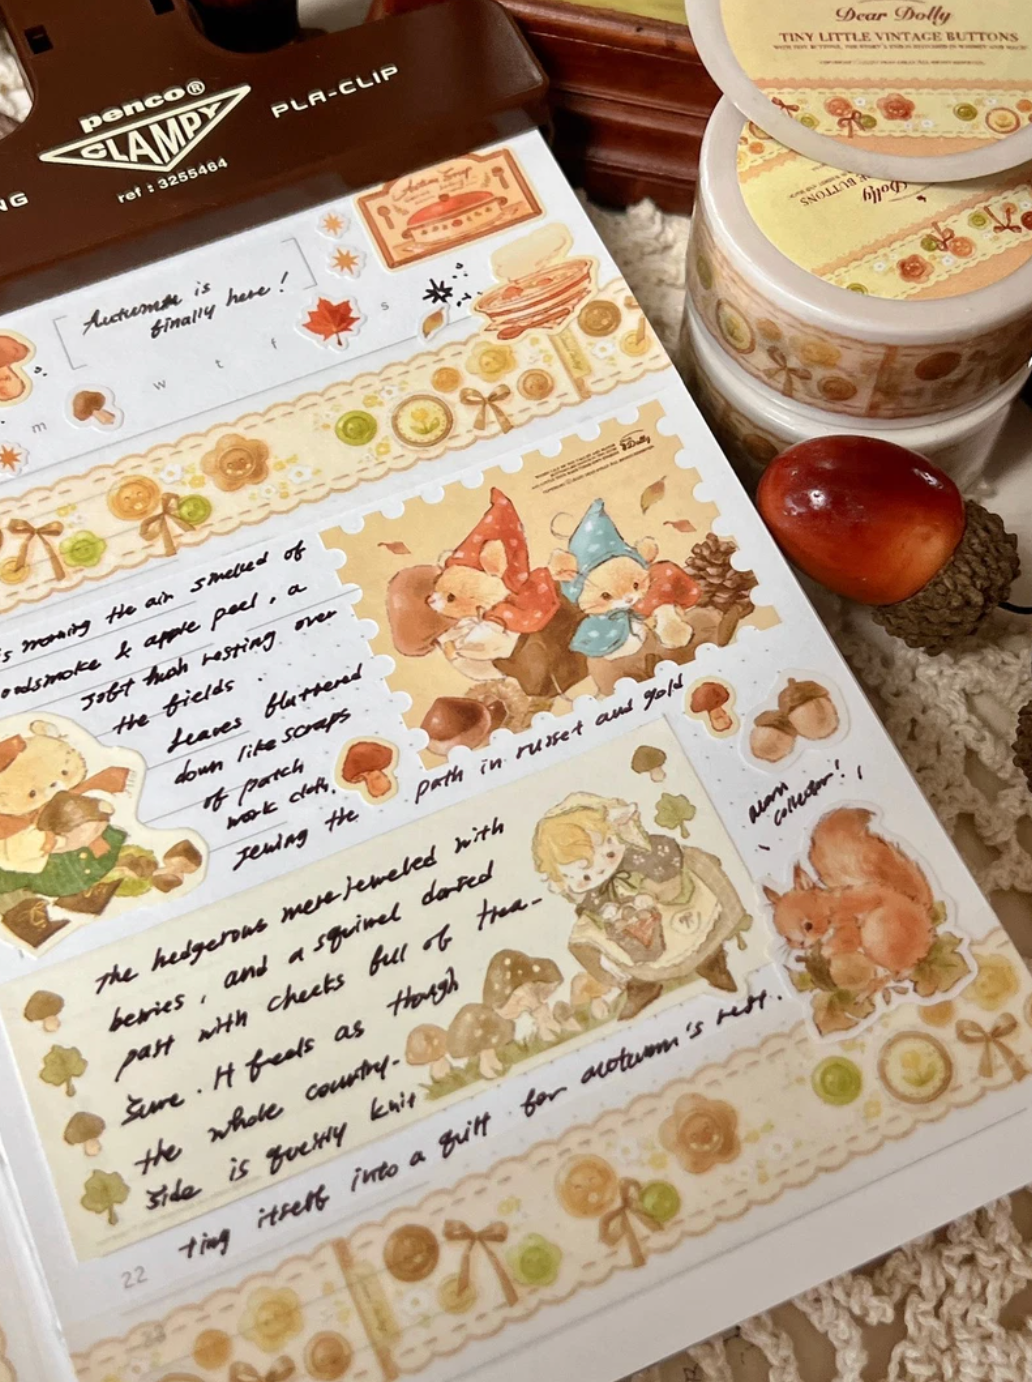 penco®
CLAMPY
PLA-CLIP
ref : 3255464
NG
Dear Dolly
TINY LITTLE VINTAGE BUTTONS
Dolly
BUTTONS
Autumn is
finally here!
m w t f s
s morning the air smelled of
oodsmoke & apple peel, a
soft hush resting over
the fields.
Leaves fluttered
down like scraps
of patch
work cloth,
sewing the path in russet and gold
Dolly
the hedgerows were jeweled with
berries, and a squirrel darted
past with cheeks full of trea-
sure. It feels as though
the whole country-
side is quietly knit
ting itself into a quilt for autumn's rest.
collector!
22